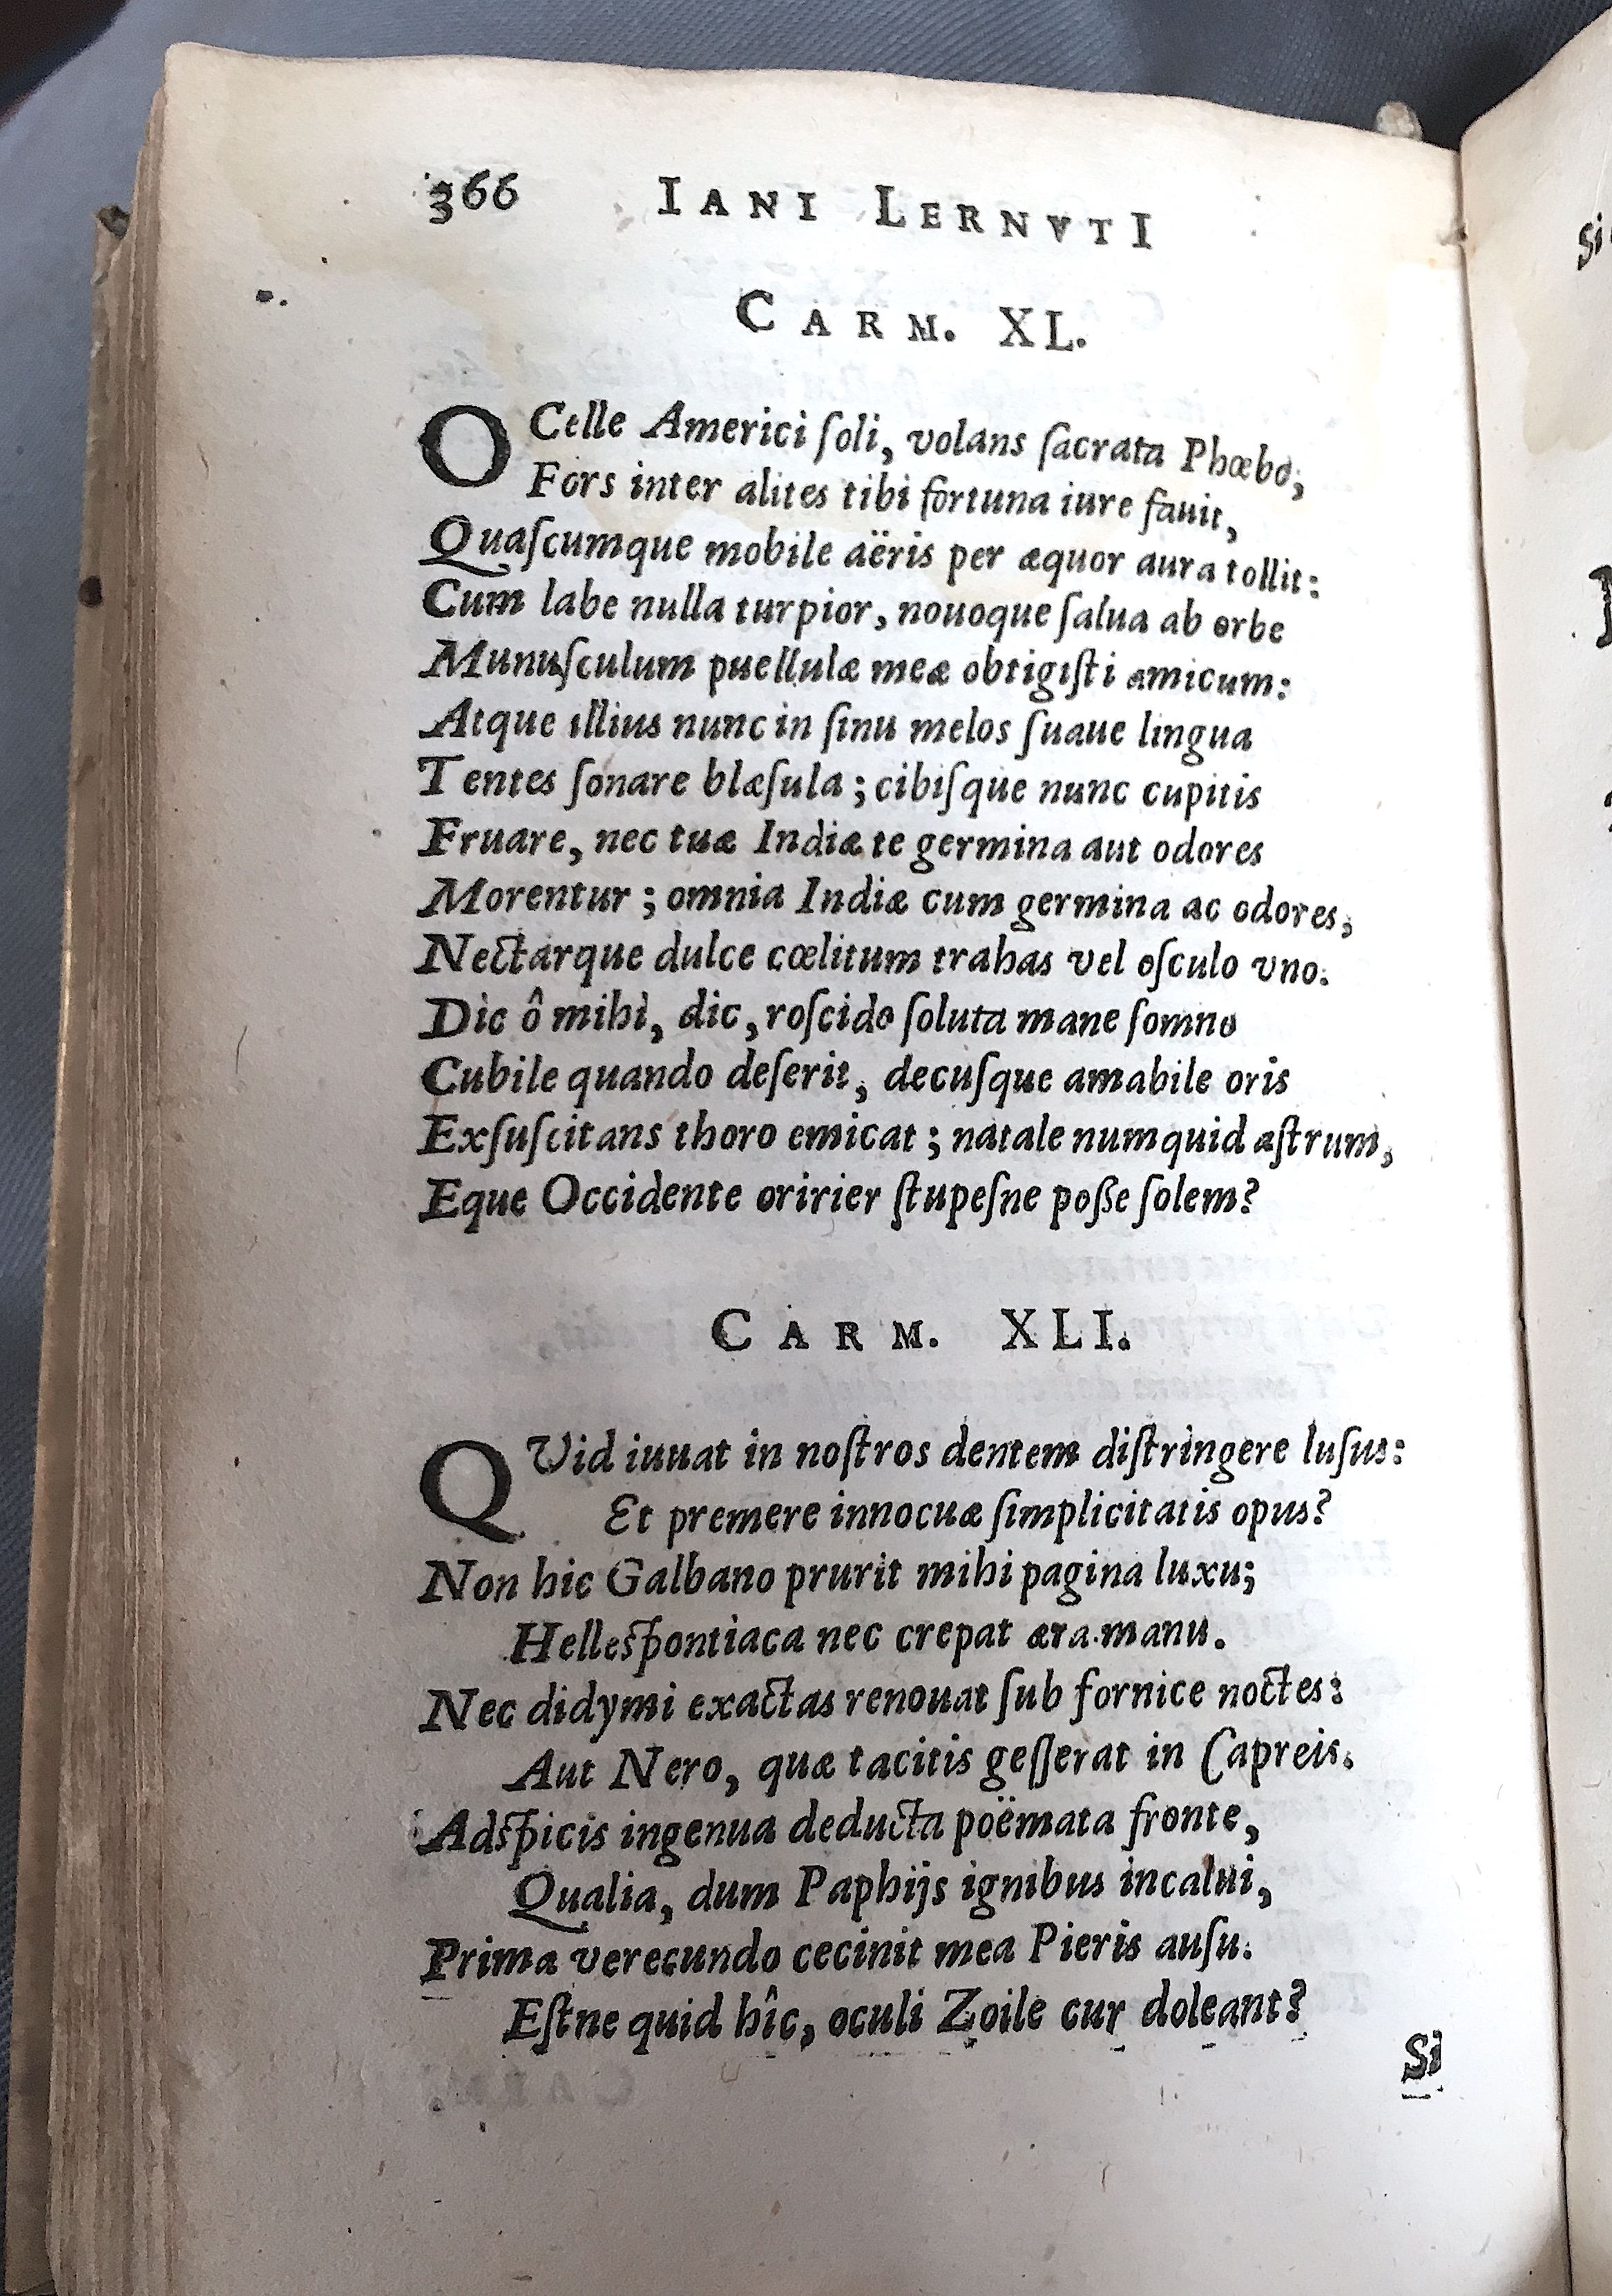 366 IANI LERNVTI
CARM. XL.
OCelle Americi ſoli, volans ſacrata Phœbo,
Fors inter alites tibi fortuna iure fauit,
Quaſcumque mobile aëris per æquor aura tollit:
Cum labe nulla turpior, nouoque ſalua ab orbe
Munuſculum puellulæ meæ obtigiſti amicum:
Atque illius nunc in ſinu melos ſuaue lingua
Tentes ſonare blæſula; cibiſque nunc cupitis
Fruare, nec tuæ Indiæ te germina aut odores
Morentur; omnia Indiæ cum germina ac odores,
Nectarque dulce cœlitum trahas vel oſculo vno.
Dic ô mihi, dic, roſcido ſoluta mane ſomno
Cubile quando deſerit, decuſque amabile oris
Exſuſcitans thoro emicat; natale numquid aſtrum,
Eque Occidente oririer ſtupeſne poße ſolem?
CARM. XLI.
QVid iuuat in noſtros dentem diſtringere luſus:
Et premere innocuæ ſimplicitatis opus?
Non hic Galbano prurit mihi pagina luxu;
Helleſpontiaca nec crepat æra manu.
Nec didymi exactas renouat ſub fornice noctes:
Aut Nero, quæ tacitis geſſerat in Capreis.
Adſpicis ingenua deducta poëmata fronte,
Qualia, dum Paphijs ignibus incalui,
Prima verecundo cecinit mea Pieris auſu.
Eſtne quid hîc, oculi Zoile cur doleant?
Si